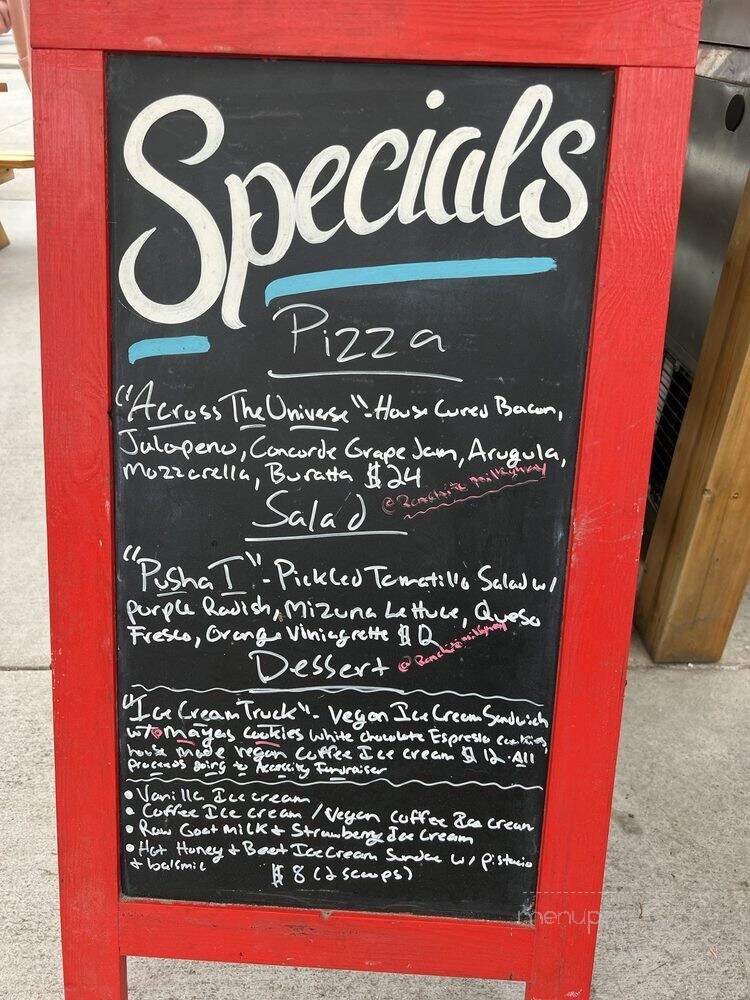 Specials
Pizza
"Across The Universe" - House Cured Bacon,
Jalapeno, Concorde Grape Jam, Arugula,
Mozzarella, Buratta $24
Salad
"Pusha T" - Pickled Tomatillo Salad w/
purple Radish, Mizuna Lettuce, Queso
Fresco, Orange Viniagrette $12
Dessert
"Ice Cream Truck" - Vegan Ice Cream Sandwich
w/ @mayas cookies white chocolate Espresso cookies
house made vegan coffee Ice cream $12 - All
proceeds going to Accessity Fundraiser
• Vanilla Ice cream
• Coffee Ice cream / Vegan coffee Ice cream
• Raw Goat Milk + Strawberry Ice Cream
• Hot Honey + Beet Ice Cream Sundae w/ pistacio
+ balsmic
$8 (2 scoops)
menup